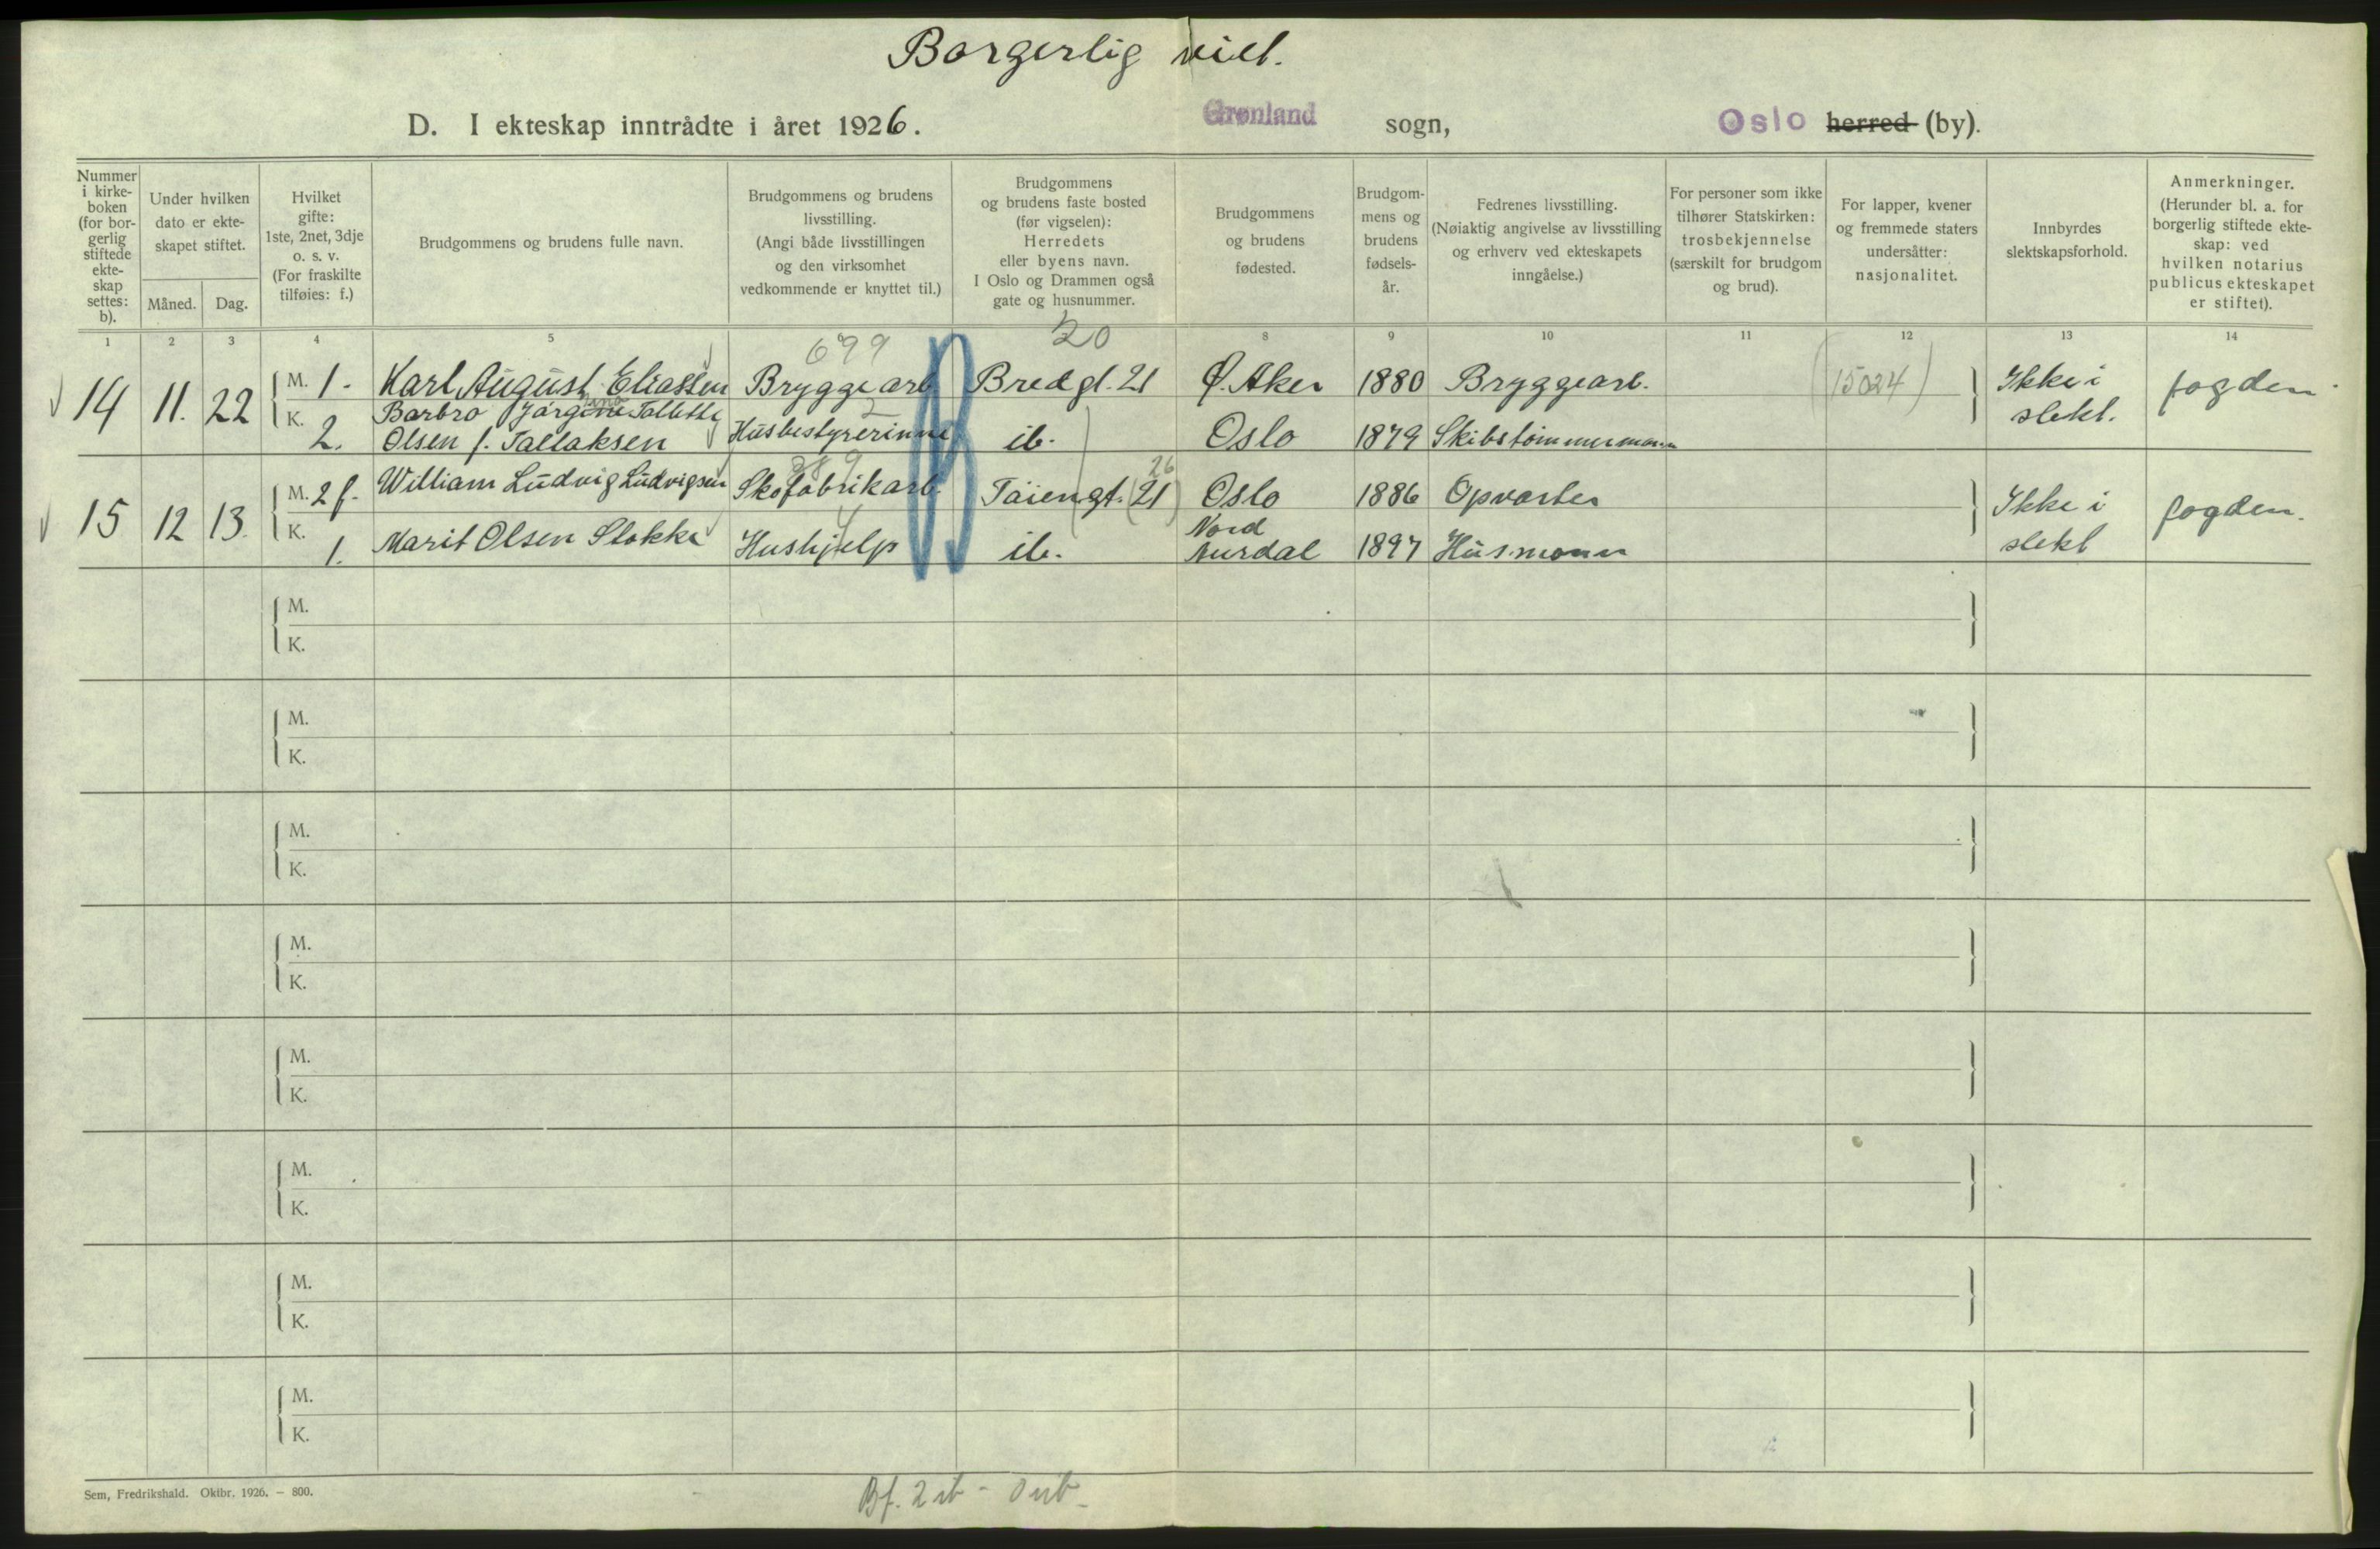 Borgerlig viet.
D. I ekteskap inntrådte i året 1926. Grønland sogn, Oslo herred (by).
Nummer i kirkeboken (for borgerlig stiftede ekteskap settes: b).
Under hvilken dato er ekteskapet stiftet.
Måned. Dag.
Hvilket gifte: 1ste, 2net, 3dje o. s. v. (For fraskilte tilføies: f.)
Brudgommens og brudens fulle navn.
Brudgommens og brudens livsstilling. (Angi både livsstillingen og den virksomhet vedkommende er knyttet til.)
Brudgommens og brudens faste bosted (før vigselen): Herredets eller byens navn. I Oslo og Drammen også gate og husnummer.
Brudgommens og brudens fødested.
Brudgommens og brudens fødselsår.
Fedrenes livsstilling. (Nøiaktig angivelse av livsstilling og erhverv ved ekteskapets inngåelse.)
For personer som ikke tilhører Statskirken: trosbekjennelse (særskilt for brudgom og brud).
For lapper, kvener og fremmede staters undersåtter: nasjonalitet.
Innbyrdes slektskapsforhold.
Anmerkninger. (Herunder bl. a. for borgerlig stiftede ekteskap: ved hvilken notarius publicus ekteskapet er stiftet).
1 2 3 4 5 8 9 10 11 12 13 14
699 20
14 11. 22 M. 1. Karl August Eliassen Bryggearb Bredgt. 21 Ø. Aker 1880 Bryggearb. (15024) Ikke i slekt. fogden
K. 2. Barbro Jørgine Tallette
Olsen f. Tallaksen Husbestyrerinne ib. Oslo 1879 Skibstømmermann
15 12 13. M. 2 f. William Ludvig Ludvigsen Skofabrikarb. Tøiengt. (21) 26 Oslo 1886 Opvarter Ikke i slekt fogden.
K. 1. Marit Olsen Slokka Hushjelp ib. Nord Aurdal 1897 Husmann
M.
K.
M.
K.
M.
K.
M.
K.
M.
K.
M.
K.
M.
K.
M.
K.
Sem, Fredrikshald. Oktbr. 1926. — 800.
Bf. 2 ib - 0 uib